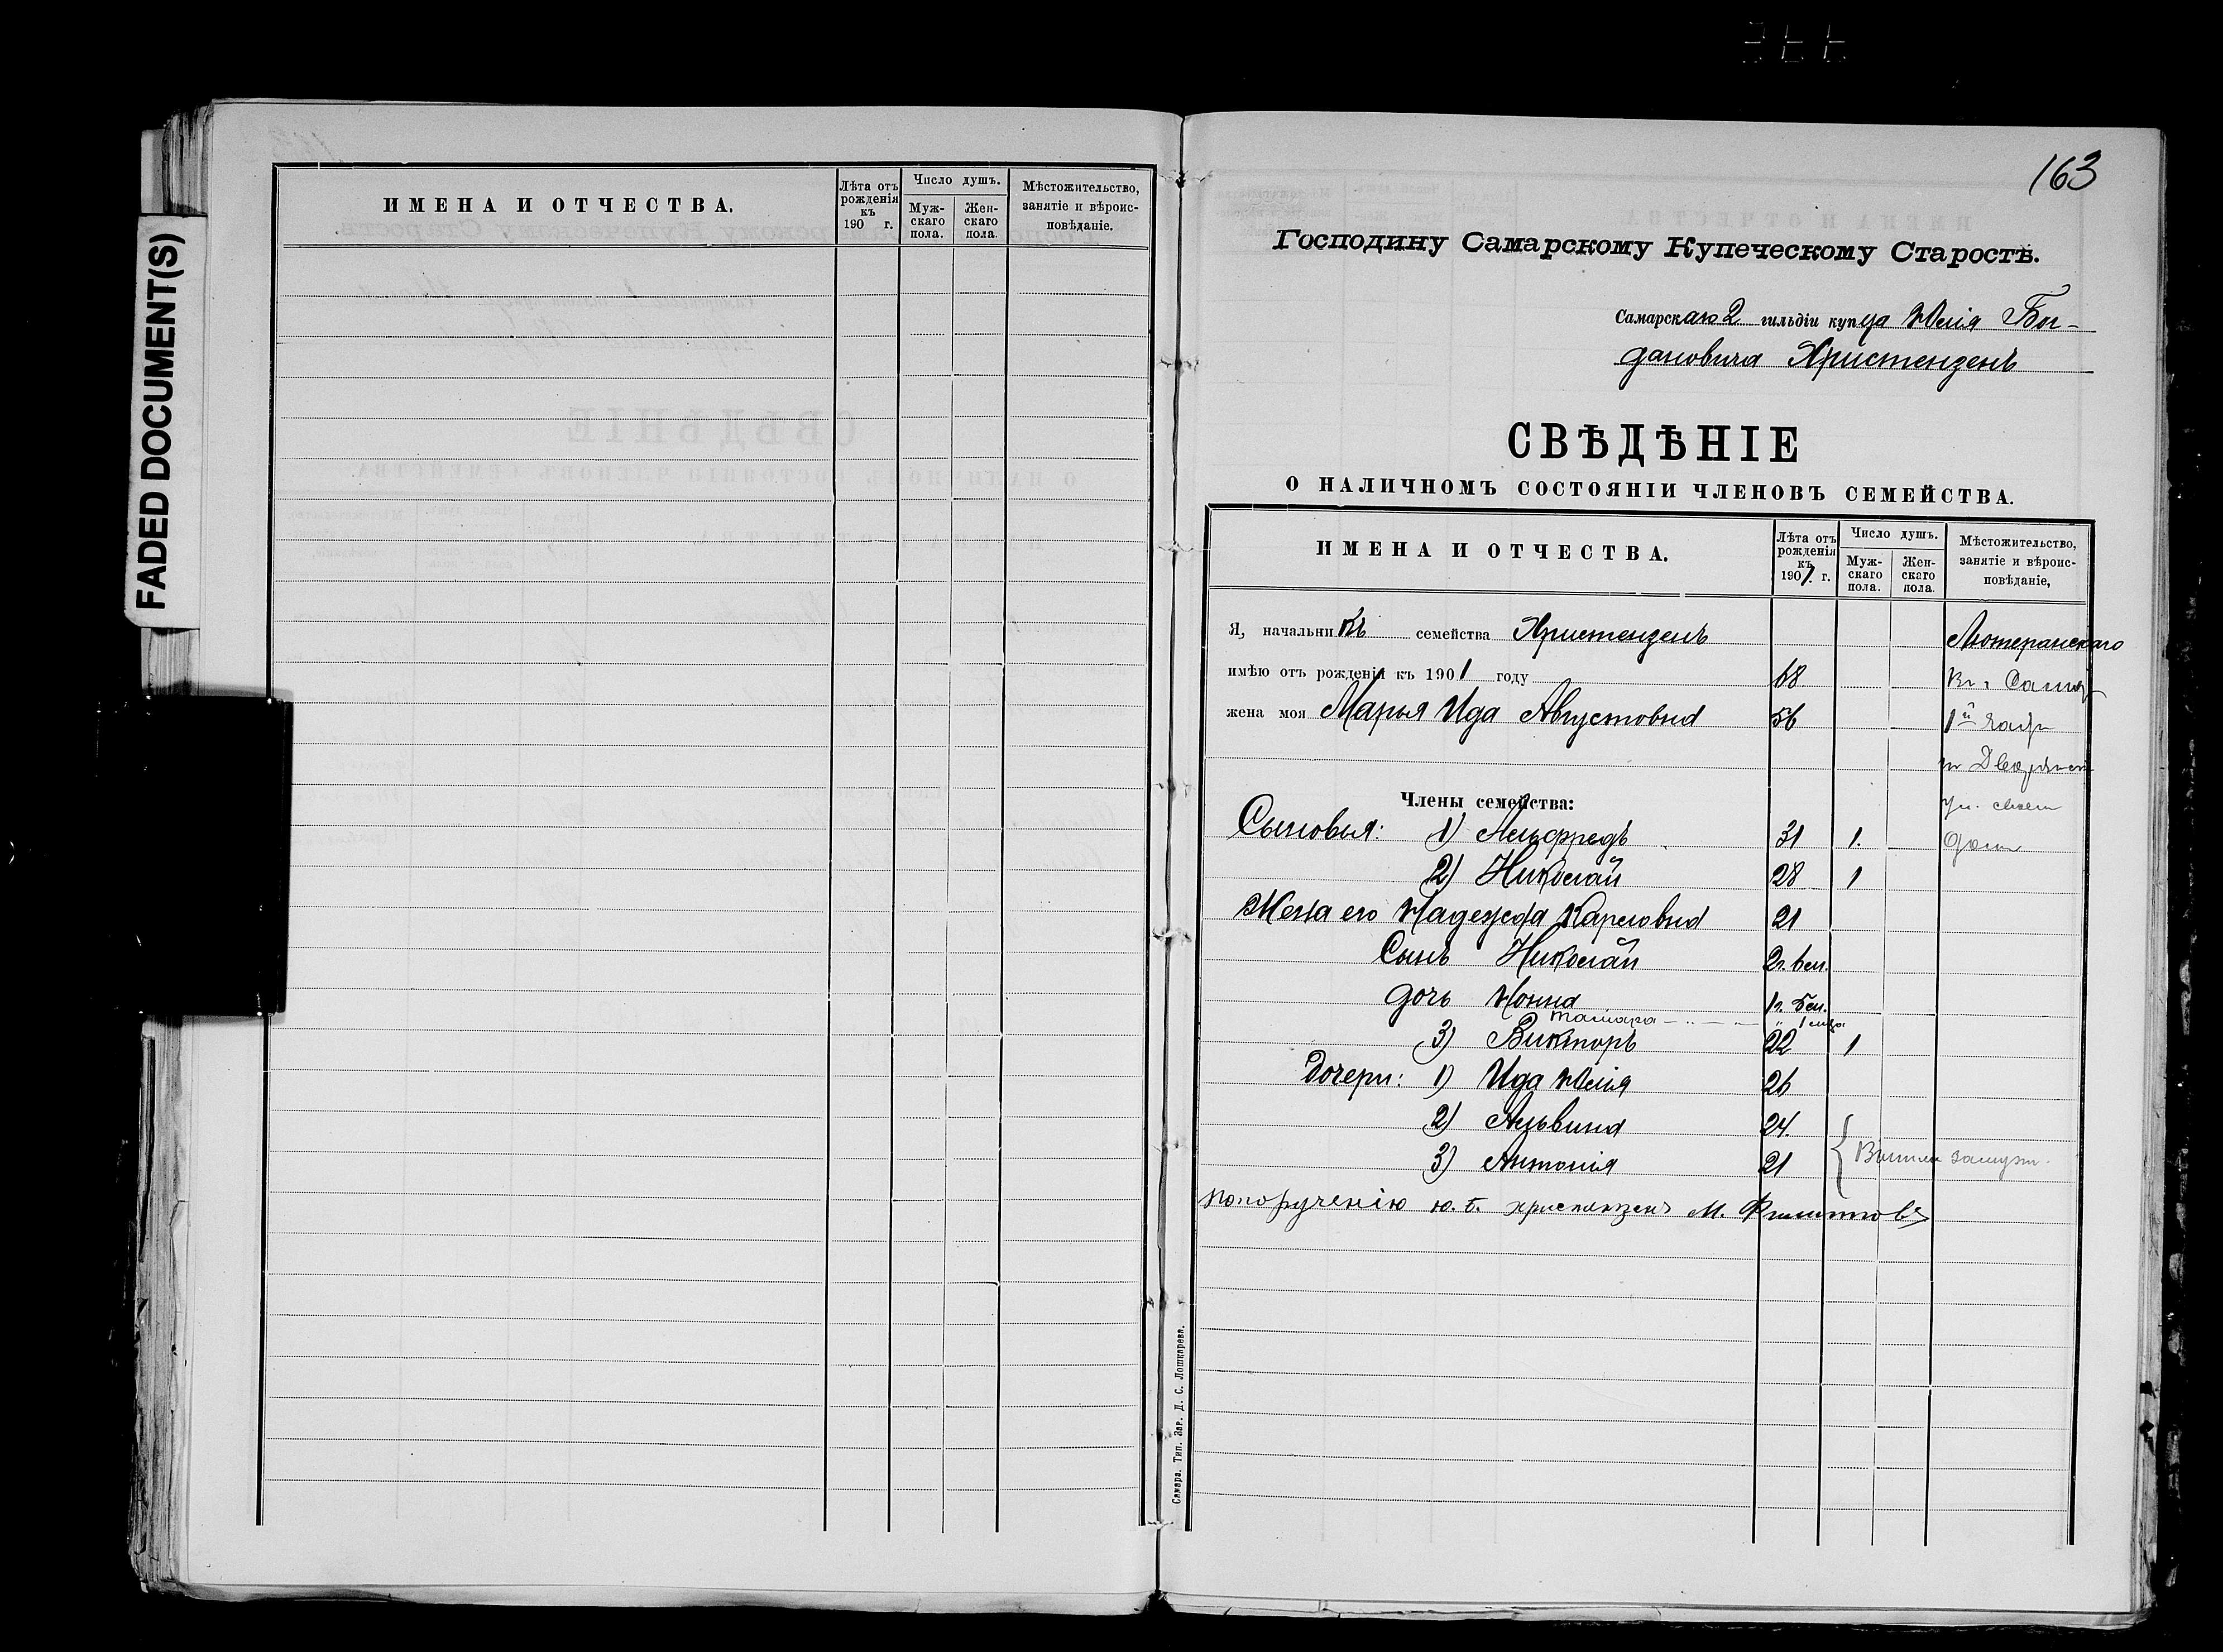 FADED DOCUMENT(S)
ИМЕНА И ОТЧЕСТВА.
Лѣта отъ рожденія къ 190 г.
Число душъ.
Муж-скаго пола.
Жен-скаго пола.
Мѣстожительство, занятіе и вѣроис-повѣданіе.
163
Господину Самарскому Купеческому Старостѣ.
Самарскаго 2 гильдіи купца Юлія Бог-
дановича Христензенъ
СВѢДѢНІЕ
О НАЛИЧНОМЪ СОСТОЯНІИ ЧЛЕНОВЪ СЕМЕЙСТВА.
ИМЕНА И ОТЧЕСТВА.
Лѣта отъ рожденія къ 1901 г.
Число душъ.
Муж-скаго пола.
Жен-скаго пола.
Мѣстожительство, занятіе и вѣроис-повѣданіе,
Я, начальникъ семейства Христензенъ Лютеранскаго
имѣю отъ рожденія къ 1901 году 68
жена моя Марья Ида Августовна 56 1й
Члены семейства:
Сыновья: 1) Альфредъ 31 1.
2) Николай 28 1
Жена его Надежда Карловна 21
Сынъ Николай 2г. 6м.
дочь Нонна 1г. 5м.
Тамара
3) Викторъ 22 1
Дочери: 1) Ида Юлія 26
2) Альвина 24.
3) Антонія 21
Вышли замуж.
По порученію Ю. Б. Христензенъ М. Филипповъ
Самара. Тип. Зав. Д. С. Лошкарева.